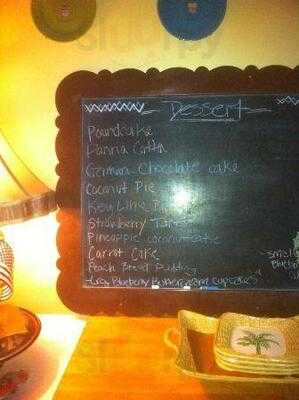 Dessert
Poundcake
Panna Cotta
German Chocolate cake
Coconut Pie
Key Lime Pie
Strawberry Tart
Pineapple coconut cake
Carrot Cake
Peach Bread Pudding
Blueberry Buttercream cupcakes